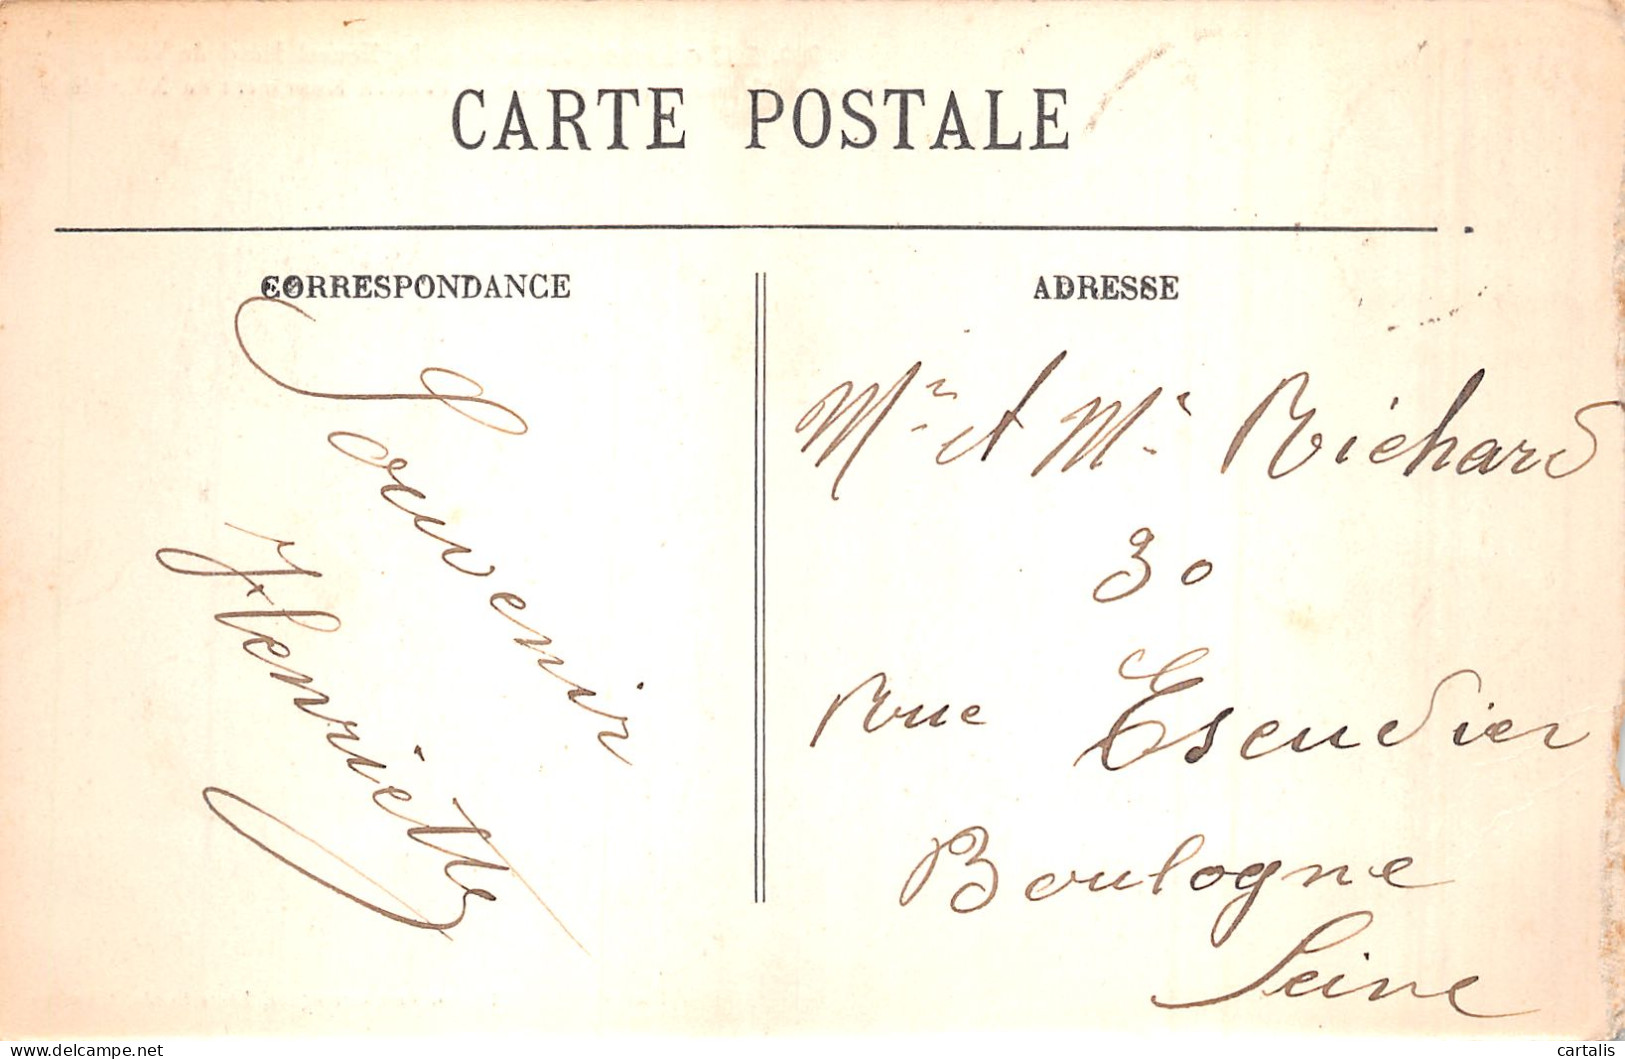 CARTE POSTALE
CORRESPONDANCE
ADRESSE
Souvenir
Henriette
Mr et Me Richard
30
Rue Escudier
Boulogne
Seine
www.delcampe.net
cartalis